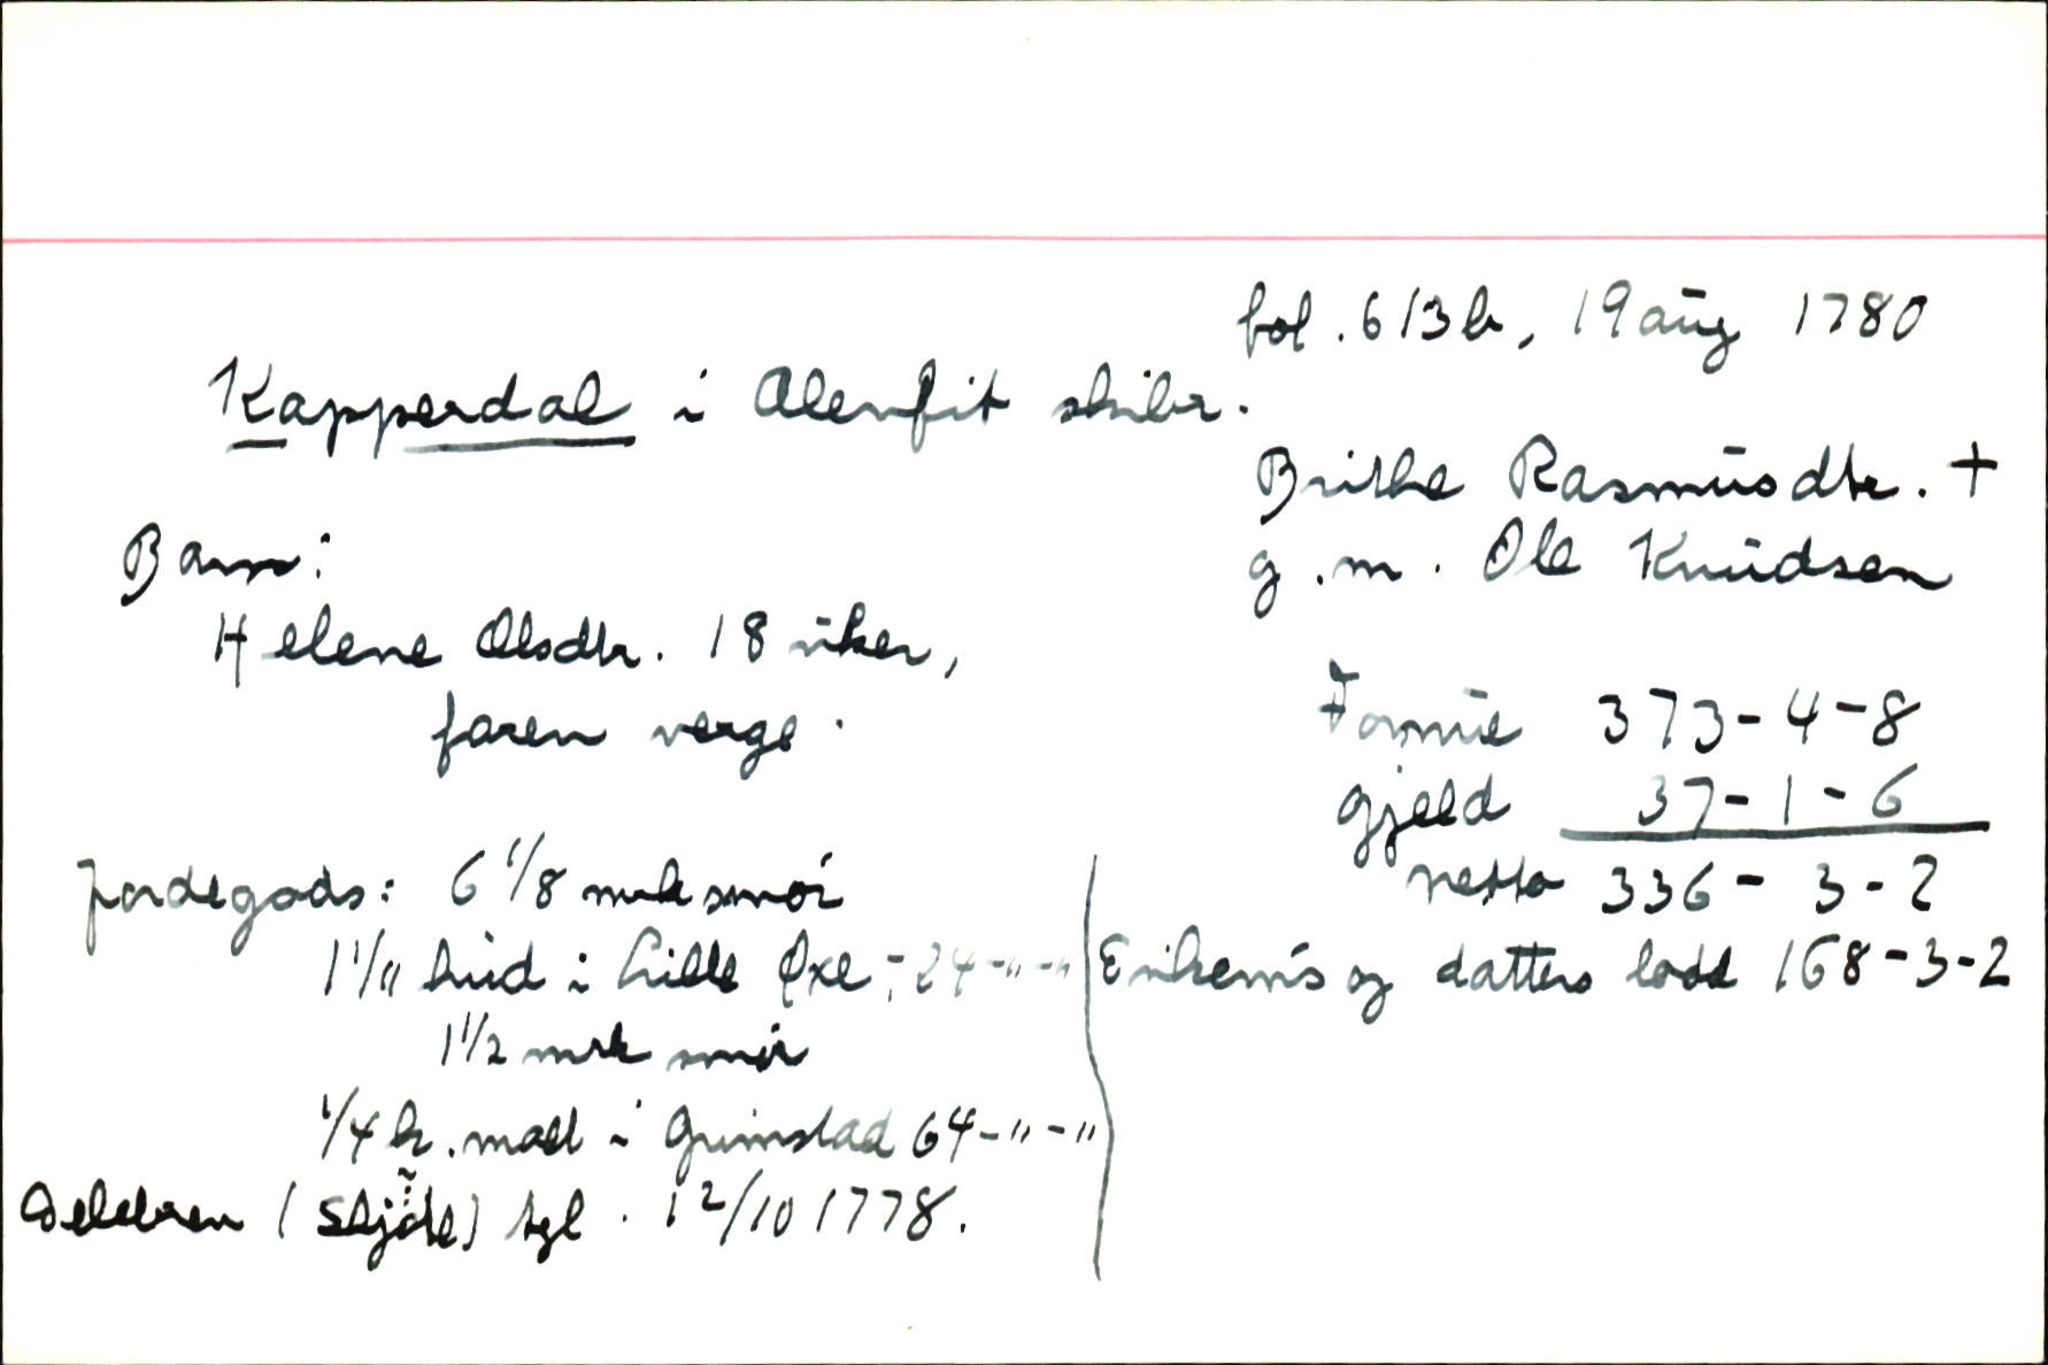 fol. 613b, 19 aug 1780
Kapperdal i Alenfit skibr.
Brithe Rasmusdtr. +
g.m. Ole Knudsen
Barn:
Helene Olsdtr. 18 uker,
faren verge.
Formue 373-4-8
gjeld 37-1-6
netto 336-3-2
jordegods: 6 1/8 mrk smør
hud i Lille Øxe, -24-"-"
1 1/2 mrk smør
1/4 h. malt i Grimstad 64-"-"
(skjøte) tgl. 12/10 1778.
Enkem's og datters lodd 168-3-2